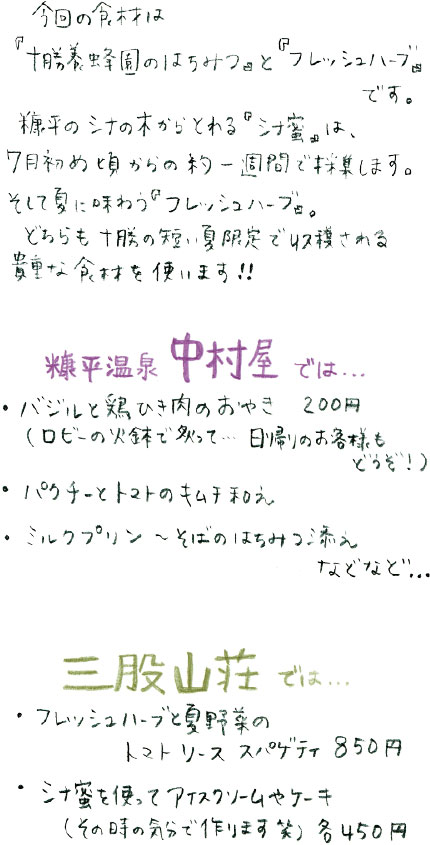 今回の食材は
『十勝養蜂園のはちみつ』と『フレッシュハーブ』
です。
糠平のシナの木からとれる『シナ蜜』は、
7月初め頃からの約一週間で採集します。
そして夏に味わう『フレッシュハーブ』。
どちらも十勝の短い夏限定で収穫される
貴重な食材を使います!!
糠平温泉 中村屋 では…
・バジルと鶏ひき肉のおやき 200円
(ロビーの火鉢で炙って… 日帰りのお客様も
どうぞ!)
・パクチーとトマトのキムチ和え
・ミルクプリン ~そばのはちみつ添え
などなど…
三股山荘 では…
・フレッシュハーブと夏野菜の
トマトソース スパゲティ 850円
・シナ蜜を使ってアイスクリームやケーキ
(その時の気分で作ります笑) 各450円